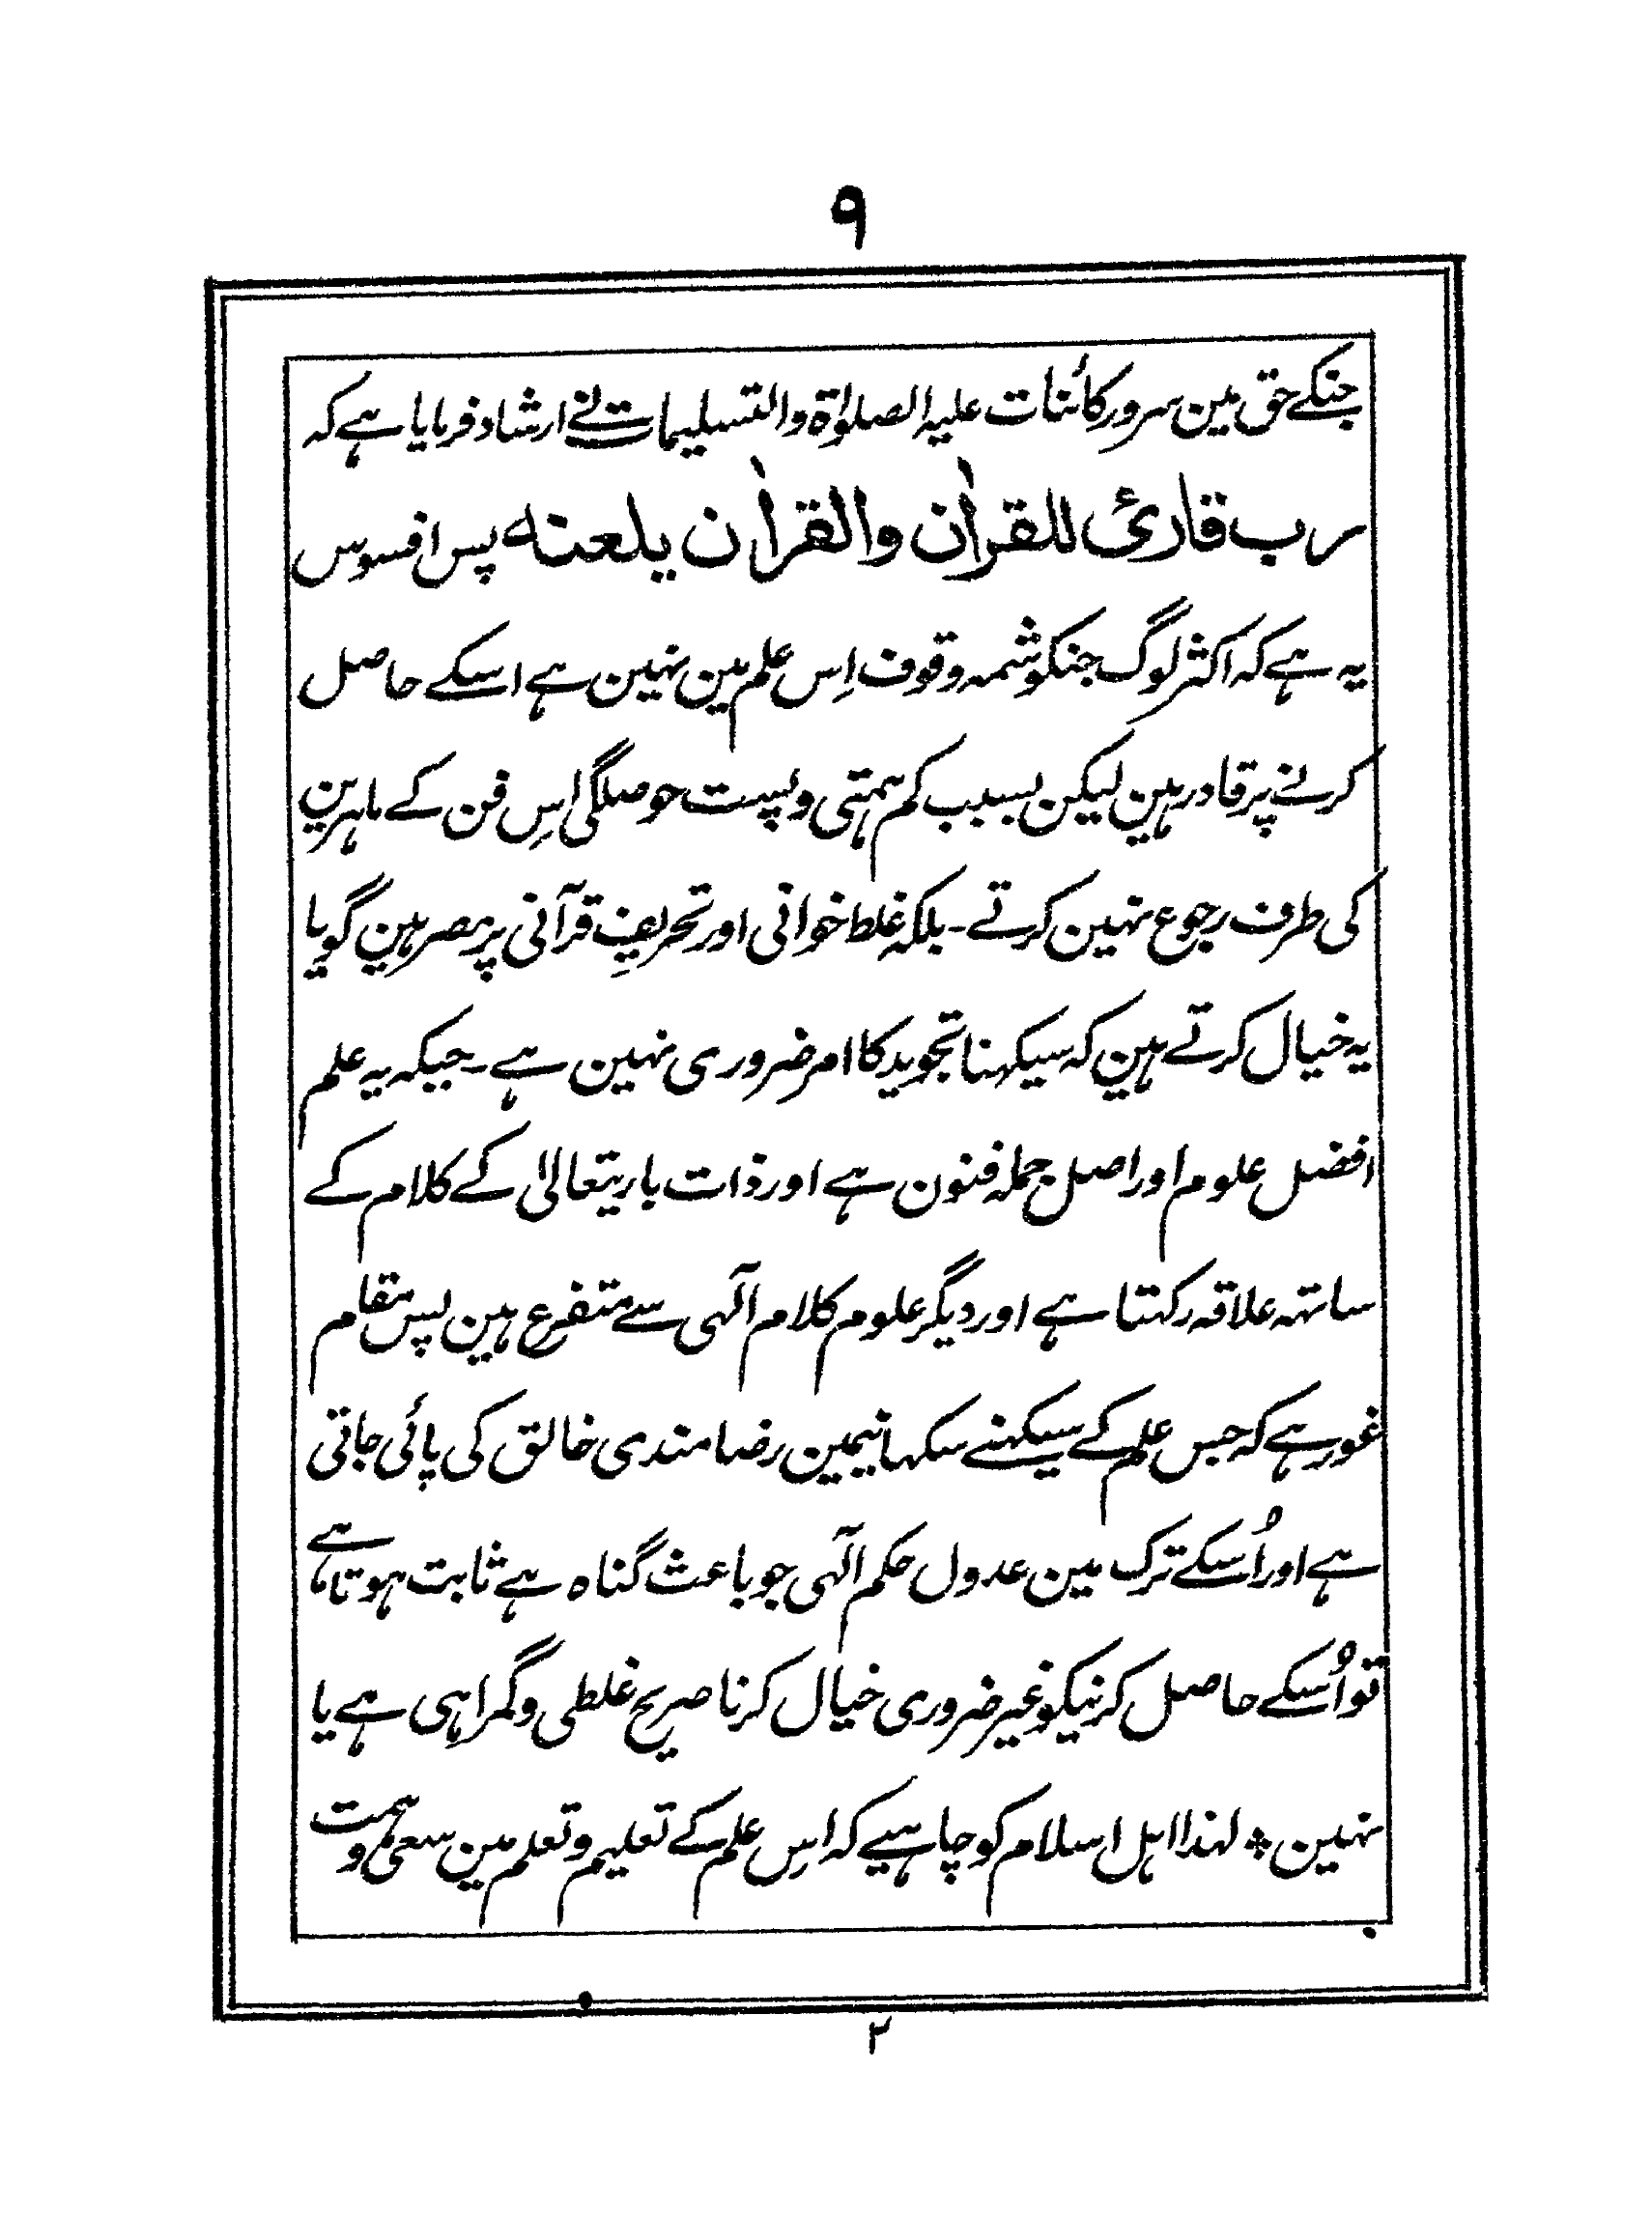 ۹
جنکے حق مین سرور کائنات علیہ الصلوٰۃ والتسلیمات نے ارشاد فرمایا ہے کہ
رب قارئ للقراٰن والقراٰن یلعنه پس افسوس
یہ ہے کہ اکثر لوگ جنکو شمہ وقوف اِس علم مین نہین ہے اسکے حاصل
کرنے پر قادر ہین لیکن بسبب کم ہمتی و پست حوصلگی اِس فن کے ماہرین
کی طرف رجوع نہین کرتے۔ بلکہ غلط خوانی اور تحریفِ قرآنی پر مصر ہین گویا
یہ خیال کرتے ہین کہ سیکہنا تجوید کا امر ضروری نہین ہے۔ جبکہ یہ علم
افضل علوم اور اصل جملہ فنون ہے اور ذات باریتعالیٰ کے کلام کے
ساتہہ علاقہ رکہتا ہے اور دیگر علوم کلام الٓہی سے متفرع ہین پس مقام
غور ہے کہ جس علم کے سیکہنے سکہانیمین رضامندی خالق کی پائی جاتی
ہے اور اُسکے ترک مین عدول حکم الٓہی جو باعث گناہ ہے ثابت ہوتا ہے
تو اُسکے حاصل کرنیکو غیر ضروری خیال کرنا صریح غلطی و گمراہی ہے یا
نہین ۞ لہذا اہل اسلام کو چاہیے کہ اس علم کے تعلیم و تعلم مین سعی و ہمت
۲